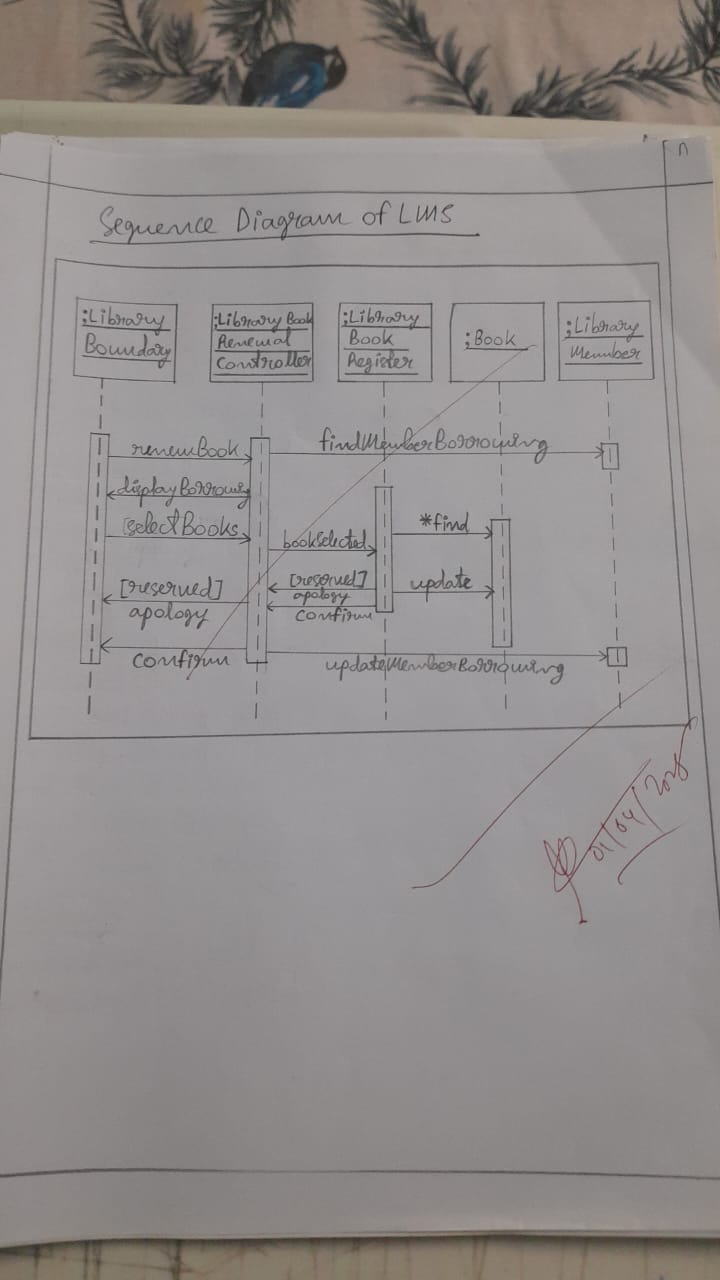 Sequence Diagram of LMS
;Library
Boundary
;Library Book
Renewal
Controller
;Library
Book
Register
;Book
;Library
Member
renewBook
findMemberBorrowing
displayBorrowing
selectBooks
bookSelected
*find
[reserved]
apology
[reserved]
apology
update
confirm
confirm
updateMemberBorrowing
01/04/2025